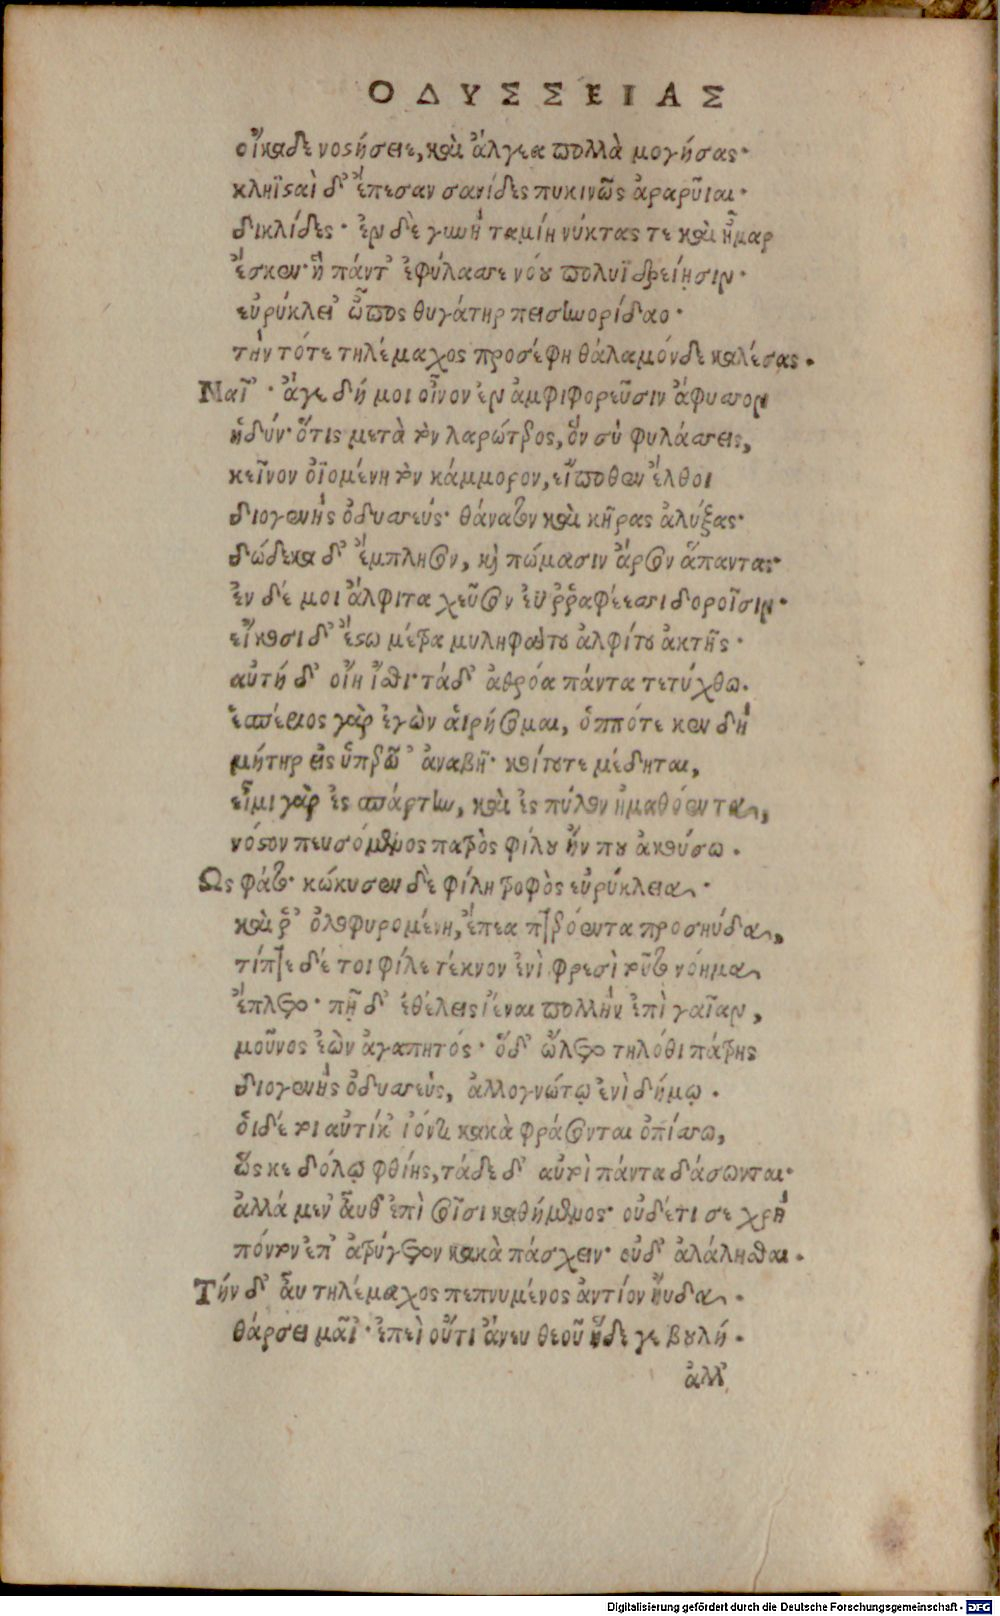 ΟΔΥΣΣΕΙΑΣ
οἴκαδε νοστήσειε, καὶ ἄλγεα πολλὰ μογήσας·
κληϊσταὶ δ' ἔπεσαν σανίδες πυκινῶς ἀραρῦιαι·
δικλίδες· ἐν δὲ γυνὴ ταμίη νύκτας τε καὶ ἦμαρ
ἔσκεν· ἣ πάντ' ἐφύλασσε νόου πολυϊδρείῃσιν·
εὐρύκλει' ὦπος θυγάτηρ πεισηνορίδαο·
τὴν τότε τηλέμαχος προσέφη θάλαμόνδε καλέσας.
Μαῖ'· ἄγε δή μοι οἶνον ἐν ἀμφιφορεῦσιν ἄφυσσον
ἡδύν· ὅτις μετὰ τὸν λαρώτατος, ὃν σὺ φυλάσσεις,
κεῖνον ὀϊομένη τὸν κάμμορον, εἴποθεν ἔλθοι
διογενὴς ὀδυσσεύς· θάνατον καὶ κῆρας ἀλύξας·
δώδεκα δ' ἔμπλησον, καὶ πώμασιν ἄρσον ἅπαντας·
ἐν δέ μοι ἄλφιτα χεῦσον ἐϋρραφέεσσι δοροῖσιν·
εἴκοσι δ' ἔστω μέτρα μυληφάτου ἀλφίτου ἀκτῆς·
αὐτή δ' οἴη ἴσθι· τάδ' ἀθρόα πάντα τετύχθω.
ἑσπέριος γὰρ ἐγὼν αἱρήσομαι, ὁππότε κεν δὴ
μήτηρ εἰς ὑπερῷ' ἀναβῇ· κοίτου τε μέδηται,
εἶμι γὰρ ἐς σπάρτην, καὶ ἐς πύλον ἠμαθόεντα,
νόστον πευσόμενος πατρὸς φίλου ἤν που ἀκούσω.
Ως φάτο· κώκυσεν δὲ φίλη τροφὸς εὐρύκλεια·
καὶ ῥ' ὀλοφυρομένη, ἔπεα πτερόεντα προσηύδα,
τίπτε δέ τοι φίλε τέκνον ἐνὶ φρεσὶ τοῦτο νόημα
ἔπλετο· πῇ δ' ἐθέλεις ἰέναι πολλὴν ἐπὶ γαῖαν,
μοῦνος ἐὼν ἀγαπητός· ὅδ' ὤλετο τηλόθι πάτρης
διογενὴς ὀδυσσεὺς, ἀλλογνώτῳ ἐνὶ δήμῳ.
ὁιδέ τοι αὐτίκ' ἰόντι κακὰ φράσονται ὀπίσσω,
ὥς κε δόλῳ φθίῃς, τάδε δ' αὐτοὶ πάντα δάσωνται·
ἀλλά μεν' ἆυθ' ἐπὶ σοῖσι καθήμενος· οὐδέ τι σε χρὴ
πόντον ἐπ' ἀτρύγετον κακὰ πάσχειν· οὐδ' ἀλάλησθαι.
Τήν δ' ἆυ τηλέμαχος πεπνυμένος ἀντίον ηὔδα.
θάρσει μαῖ'· ἐπεὶ οὔτι ἄνευ θεοῦ ἥδε γε βουλή.
ἀλλ'
Digitalisierung gefördert durch die Deutsche Forschungsgemeinschaft - DFG